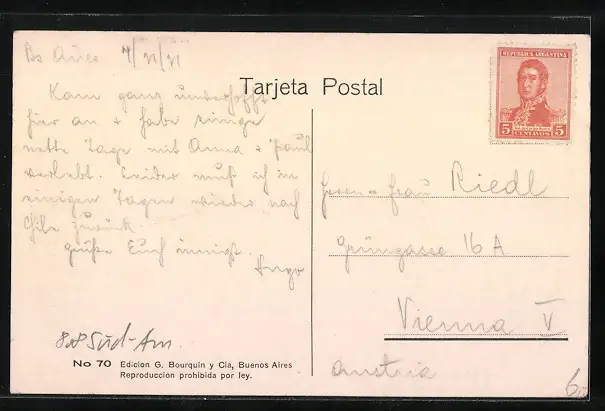 Bs Aires 4/VI/21
Tarjeta Postal
Kam ganz unverhofft
hier an + habe einige
nette Tage mit Anna + Paul
verlebt. Leider muß ich in
einigen Tagen wieder nach
Chile zurück.
Grüße Euch innigst.
Hugo
REPUBLICA ARGENTINA
5 CENTAVOS 5
Herrn + Frau Riedl
Grüngasse 16 A
Vienna V
Austria
Süd-Am.
No 70 Edicion G. Bourquin y Cia, Buenos Aires
Reproduccion prohibida por ley.